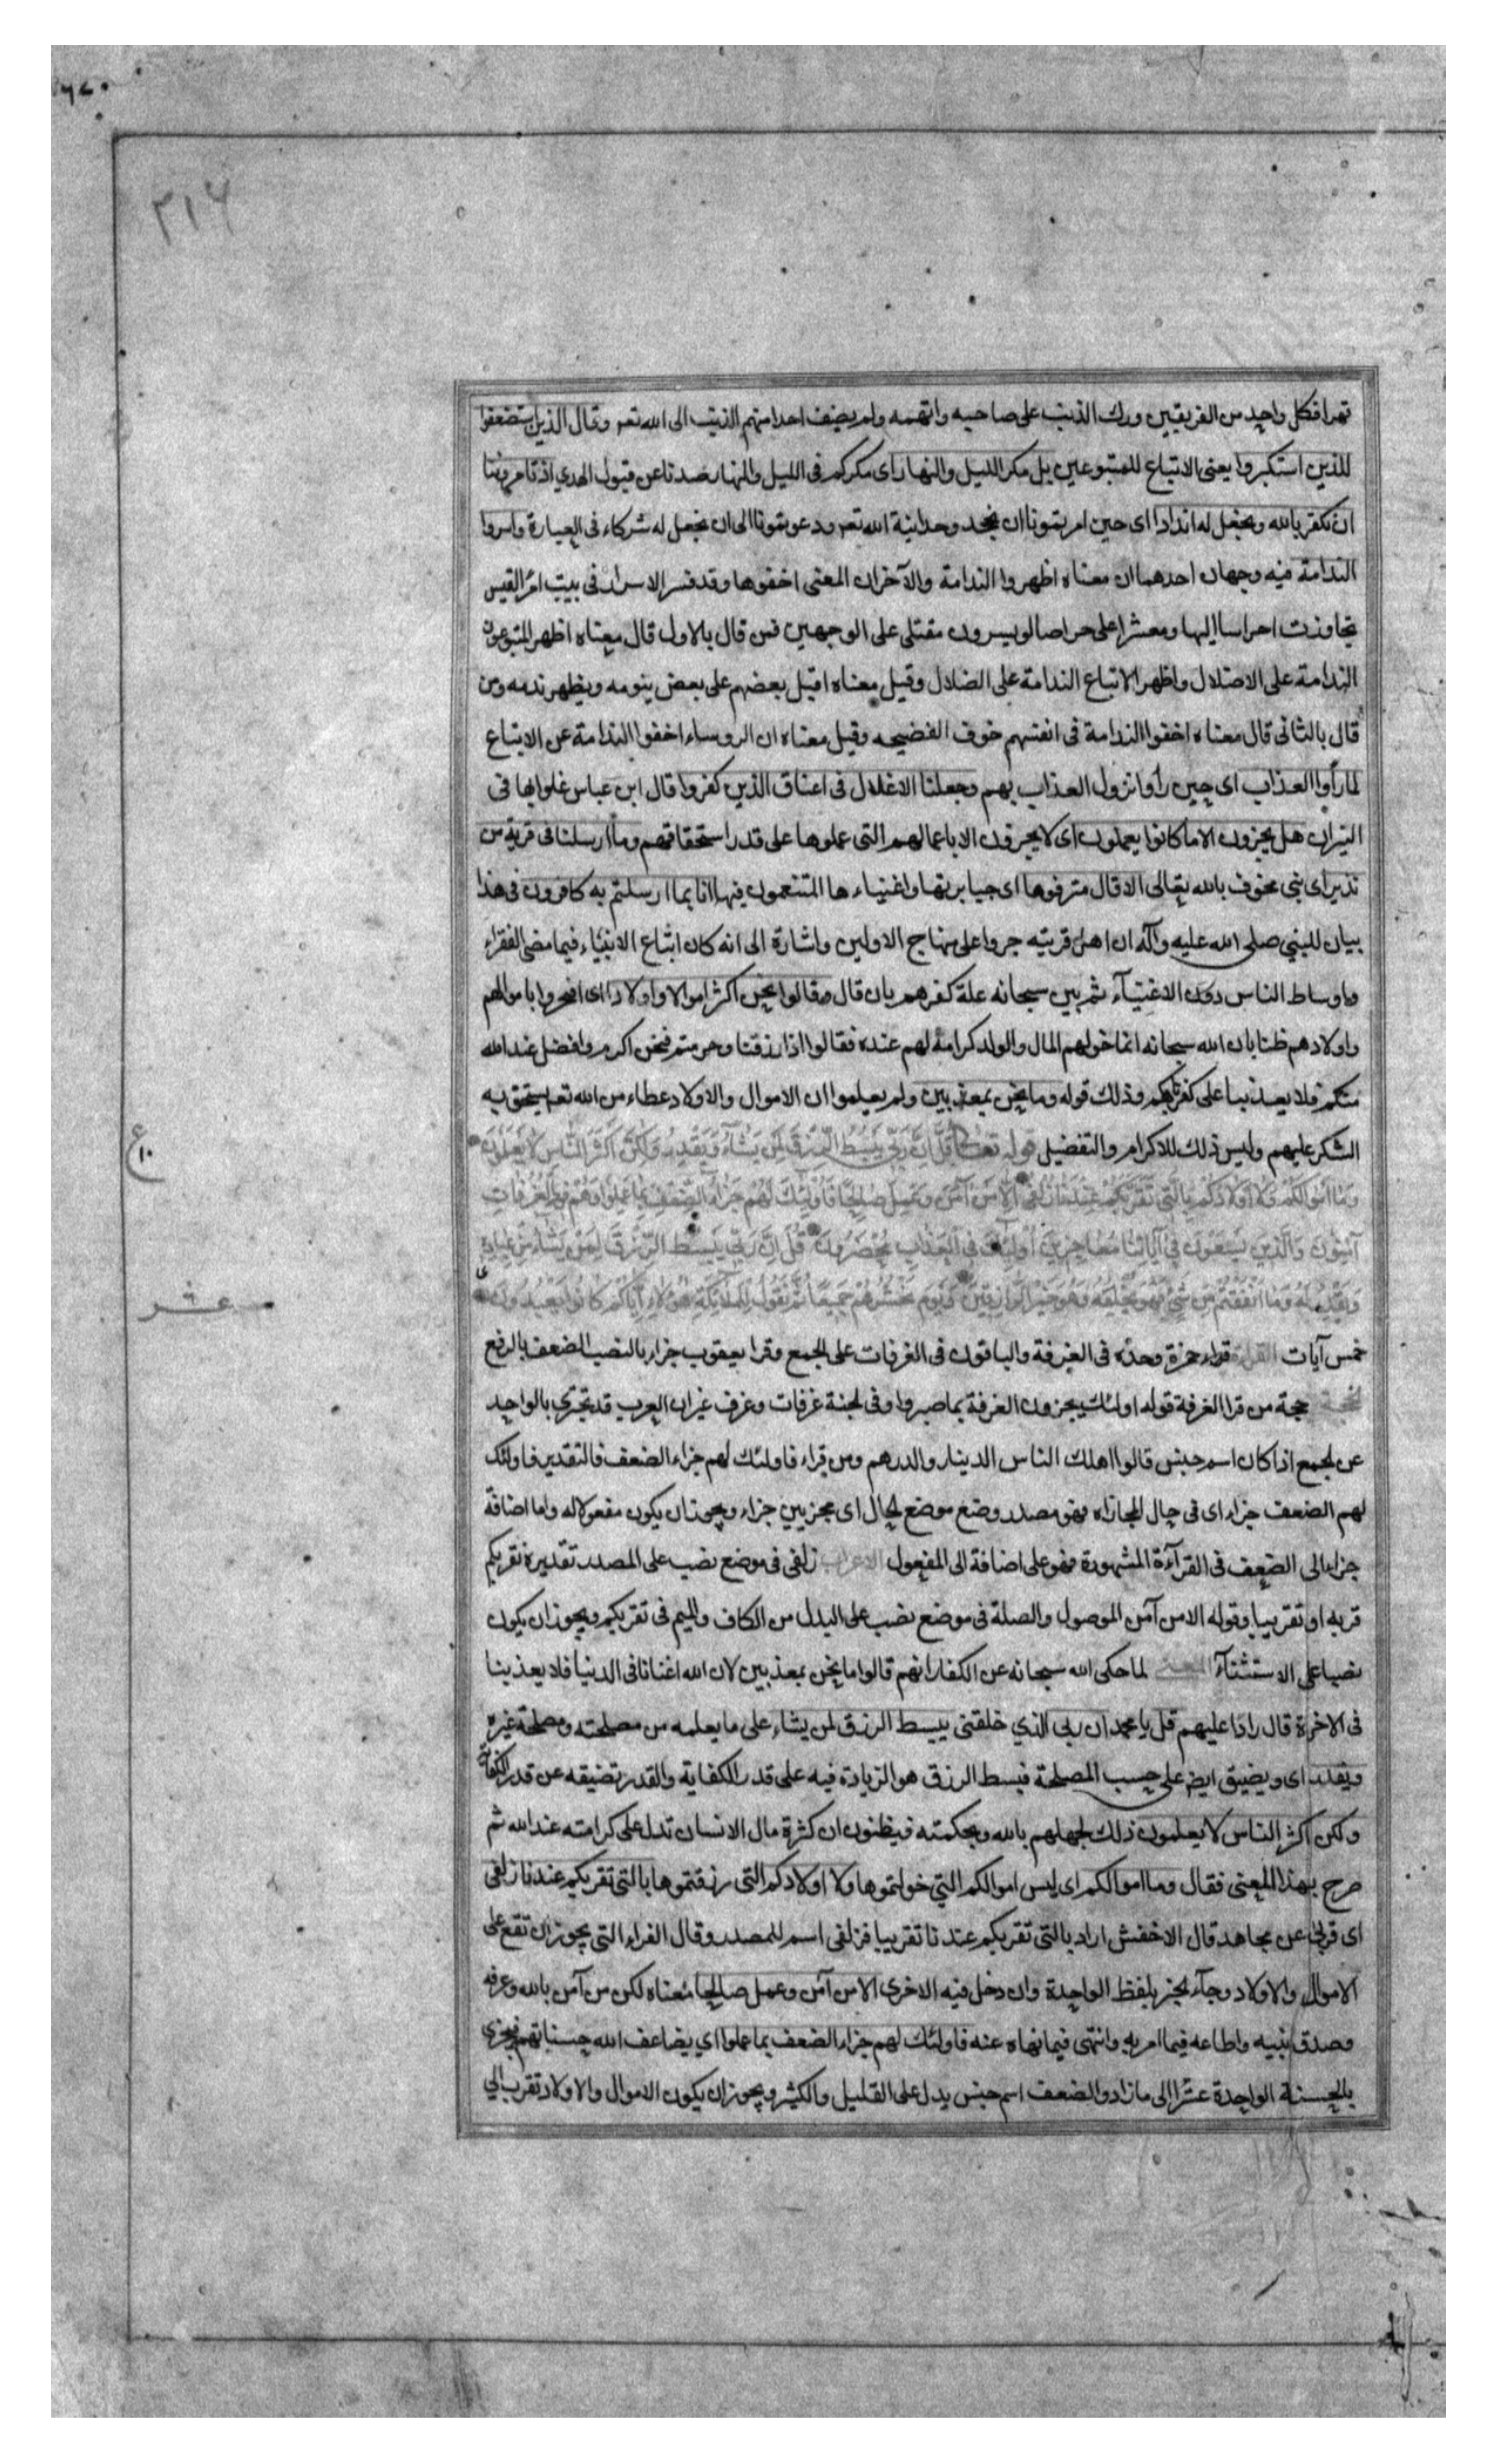 ٢١۶
تمرا فكل واحد من الفريقين ورك الذنب على صاحبه واتهمه ولم يضف احدا منهم الذنب الى الله تعم وقال الذين استضعفوا
للذين استكبروا يعنى الاتباع للمتبوعين بل مكر الليل والنهار اى مكركم فى الليل والنهار صدنا عن قبول الهدي اذ تامروننا
ان نكفر بالله ونجعل له اندادا اى حين امرتمونا ان نجحد وحدانية الله تعم ودعوتمونا الى ان نجعل له شركاء فى العبادة واسروا
الندامة فيه وجهان احدهما ان معناه اظهروا الندامة والآخر ان المعنى اخفوها وقد فسر الاسرار فى بيت امرء القيس
تجاوزت احراسا اليها ومعشرا على حراصا لو يسرون مقتلى على الوجهين فمن قال بالاول قال معناه اظهر المتبوعون
الندامة على الاضلال واظهر الاتباع الندامة على الضلال وقيل معناه اقبل بعضهم على بعض يلومه ويظهر ندمه ومن
قال بالثانى قال معناه اخفوا الندامة فى انفسهم خوف الفضيحه وقيل معناه ان الروساء اخفوا الندامة عن الاتباع
لما رأوا العذاب اى حين رأوا نزول العذاب بهم وجعلنا الاغلال فى اعناق الذين كفروا قال ابن عباس غلوا بها فى
النيران هل يجزون الا ما كانوا يعملون اى لا يجزون الا باعمالهم التى عملوها على قدر استحقاقهم وما ارسلنا فى قرية من
نذير اى نبى مخوف بالله تعالى الا قال مترفوها اى جبابرتها واغنياءها المتنعمون فيها انا بما ارسلتم به كافرون فى هذا
بيان للنبى صلى الله عليه وآله ان اهل قريته جروا على منهاج الاولين واشارة الى انه كان اتباع الانبياء فيما مضى الفقراء
واوساط الناس دون الاغنيآء ثم بين سبحانه علة كفرهم بان قال وقالوا نحن اكثر اموالا واولادا اى افتخروا باموالهم
واولادهم ظنا بان الله سبحانه انما خولهم المال والولد كرامة لهم عنده فقالوا اذا رزقنا وحرمتم فنحن اكرم وافضل عند الله
منكم فلا يعذبنا على كفرنا بكم وذلك قوله وما نحن بمعذبين ولم يعلموا ان الاموال والاولاد عطاء من الله تعم يستحق به
الشكر عليهم وليس ذلك للاكرام والتفضيل قوله تعالى قُل اِنَّ رَبِّى يَبسُطُ الرِّزقَ لِمَن يَشَاءُ وَيَقدِرُ وَلَكِنَّ اَكثَرَ النَّاسِ لا يَعلَمُونَ
وَمَا اَموَالُكُم وَلا اَولادُكُم بِالَّتِى تُقَرِّبُكُم عِندَنَا زُلفَى اِلا مَن آمَنَ وَعَمِلَ صَالِحًا فَاُولئِكَ لَهُم جَزَاءُ الضِّعفِ بِمَا عَمِلُوا وَهُم فِى الغُرُفَاتِ
آمِنُونَ وَالَّذِينَ يَسعَونَ فِى آيَاتِنَا مُعَاجِزِينَ اُولئِكَ فِى العَذَابِ مُحضَرُونَ قُل اِنَّ رَبِّى يَبسُطُ الرِّزقَ لِمَن يَشَاءُ مِن عِبَادِهِ
وَيَقدِرُ لَهُ وَمَا اَنفَقتُم مِن شَىءٍ فَهُوَ يُخلِفُهُ وَهُوَ خَيرُ الرَّازِقِينَ وَيَومَ يَحشُرُهُم جَمِيعًا ثُمَّ نَقُولُ لِلمَلائِكَةِ هؤُلاءِ اِيَّاكُم كَانُوا يَعبُدُونَ
خمس آيات القراءة قراء حمزة وحده فى الغرفة والباقون فى الغرفات على الجمع وقرا يعقوب جزاء بالنصب الضعف بالرفع
الحجة حجة من قرا الغرفة قوله اولئك يجزون الغرفة بما صبروا وفى الجنة غرفات وغرف غير ان العرب قد تجتزي بالواحد
عن الجمع اذا كان اسم جنس قالوا اهلك الناس الدينار والدرهم ومن قراء فاولئك لهم جزاء الضعف فالتقدير فاولئك
لهم الضعف جزاء اى فى حال المجازاه فهو مصدر وضع موضع الحال اى مجزيين جزاء ويجوز ان يكون مفعولا له واما اضافة
جزاء الى الضعف فى القرآءة المشهورة فهو على اضافة الى المفعول الاعراب زلفى فى موضع نصب على المصدر تقديره نقربكم
قربه او تقريبا وقوله الا من آمن الموصول والصلة فى موضع نصب على البدل من الكاف والميم فى تقربكم ويجوز ان يكون
نصبا على الاستثنآء المعنى لما حكى الله سبحانه عن الكفار انهم قالوا ما نحن بمعذبين لان الله اغنانا فى الدنيا فلا يعذبنا
فى الاخرة قال رادا عليهم قل يا محمد ان ربى الذي خلقنى يبسط الرزق لمن يشاء على ما يعلمه من مصلحته ومصلحة غيره
ويقدر اى ويضيق ايض على حسب المصلحة فبسط الرزق هو الزيادة فيه على قدر الكفاية والقدر تضيقه عن قدر الكفاية
ولكن اكثر الناس لا يعلمون ذلك لجهلهم بالله وبحكمته فيظنون ان كثرة مال الانسان تدل على كرامته عند الله ثم
صرح بهذا المعنى فقال وما اموالكم اى ليس اموالكم التي خولتموها ولا اولادكم التى رزقتموها بالتى تقربكم عندنا زلفى
اى قربى عن مجاهد قال الاخفش اراد بالتى تقربكم عندنا تقريبا فزلفى اسم للمصدر وقال الفراء التى يجوز ان تقع على
الاموال والاولاد وجآء الخبر بلفظ الواحدة وان دخل فيه الاخرى الا من آمن وعمل صالحا معناه لكن من آمن بالله وعرفه
وصدق بنبيه واطاعه فيما امر به وانتهى فيما نهاه عنه فاولئك لهم جزاء الضعف بما عملوا اي يضاعف الله حسناتهم فيجزى
بالحسنة الواحدة عشرا الى ما زاد والضعف اسم جنس يدل على القليل والكثير ويجوز ان يكون الاموال والاولاد تقرب الي
ع
١٠
عشر